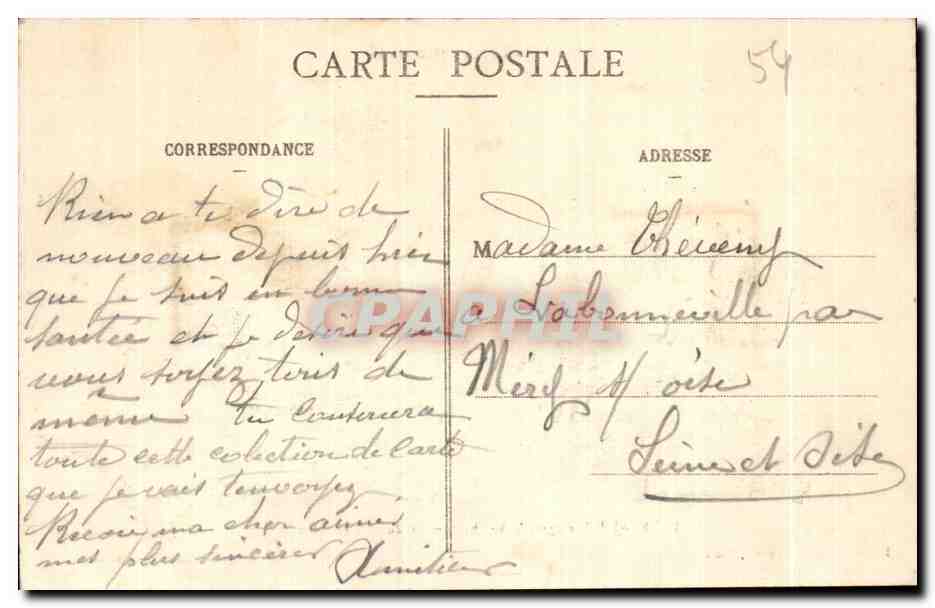 CARTE POSTALE
54
CORRESPONDANCE
Rien a te dire de
nouveau depuis hier
que je suis en bonne
santée et je désire que
vous soyez tous de
même tu conservera
toute cette colection de carte
que je vais t'envoyez
Recoie ma cher aimée
mes plus sincères Amitiées
ADRESSE
Madame Théveny
a Labonneville par
Méry s/ oise
Seine et Oise
CPAPHIL